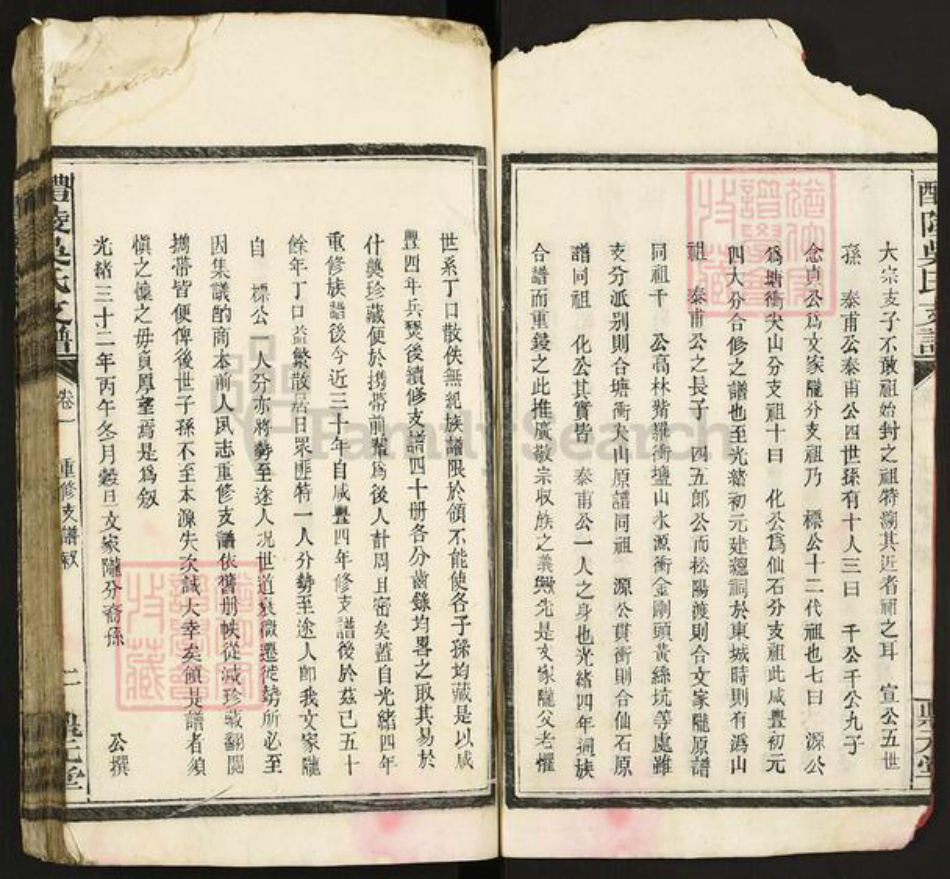 大宗支子不敢祖始封之祖特溯其近者祖之耳　宣公五世
孫　泰甫公泰甫公四世孫有十人三曰　千公千公九子
念貞公爲文家隴分支祖乃　標公十二代祖也七曰　源公
爲塘衝大山分支祖十曰　化公爲仙石分支祖此咸豐初元
四大分合修之譜也至光緒初元建總祠於東城時則有溈山
祖　泰甫公之長子　四五郎公而松陽渡則合文家隴原譜
同祖千　公高林背羅衝壇山水源衝金剛頭黃絲坑等處雖
支分派别則合塘衝大山原譜同祖　源公貫衝則合仙石原
譜同祖　化公其實皆　泰甫公一人之身也光緒四年週族
合譜而重鋟之此推廣敬宗収族之義歟先是文家隴父老懼
世系丁口散佚無紀族譜限於領不能使各子孫均藏是以咸
豐四年兵燹後續修支譜四十册各分齒錄均畧之取其易於
什襲珍藏便於擕帶前輩爲後人計周且密矣蓋自光緒四年
重修族譜後今近三十年自咸豐四年修支譜後於茲已五十
餘年丁口益繁散居日眾匪特一人分勢至途人卽我文家隴
自　標公一人分亦將勢至途人况世道衰微遷徙勢所必至
因集議酌商本前人夙志重修支譜依舊册帙從減珍藏翻閲
擕帶皆便俾後世子孫不至本源失次誠大幸矣領是譜者須
愼之懷之毋負厚望焉是爲叙
光緒三十二年丙午冬月穀旦文家隴分裔孫　公撰
醴陵吳氏支譜
卷一
重修支譜叙
二
醴陵吳氏支譜